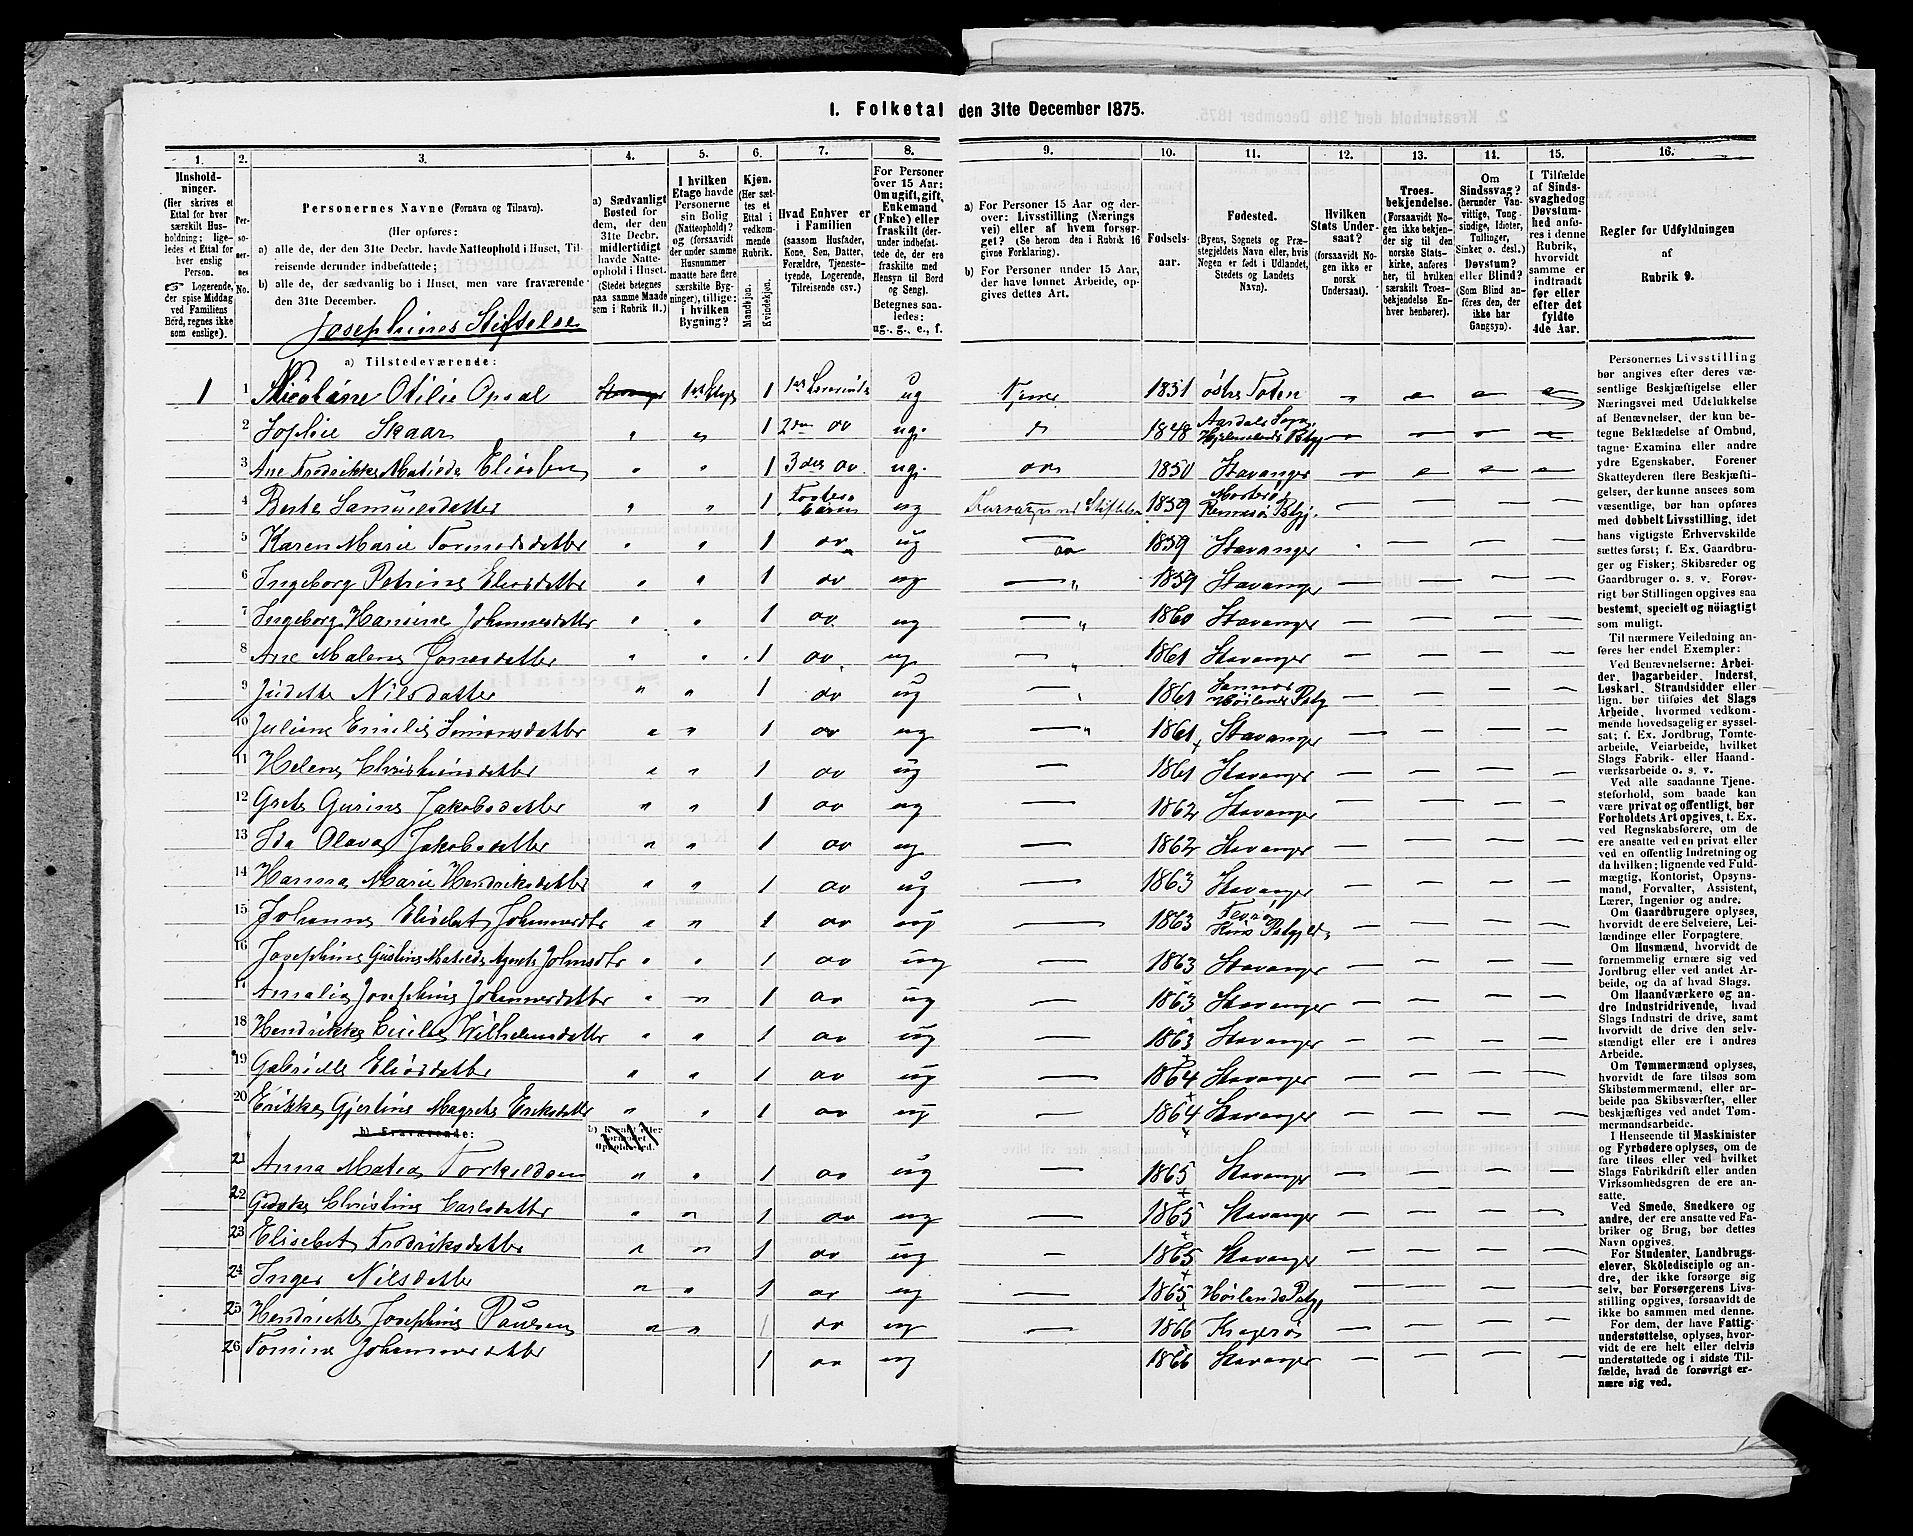 1. Folketal den 31te December 1875.
1. 2. 3. 4. 5. 6. 7. 8. 9. 10. 11. 12. 13. 14. 15. 16.
Husholdninger.
(Her skrives et Ettal for hver særskilt Husholdning; ligeledes et Ettal for hver enslig Person.
Logerende, der spise Middag ved Familiens Bord, regnes ikke som enslige).
Personernes No.
Personernes Navne (Fornavn og Tilnavn).
(Her opføres:
a) alle de, der den 31te Decbr. havde Natteophold i Huset, Tilreisende derunder indbefattede;
b) alle de, der sædvanlig bo i Huset, men vare fraværende den 31te December.
Josephines Stiftelse
a) Sædvanligt Bosted for dem, der den 31te Decbr. midlertidigt havde Natteophold i Huset. (Stedet betegnes paa samme Maade som i Rubrik 11.)
I hvilken Etage havde Personerne sin Bolig (Natteophold)? og (forsaavidt der under samme Husnummer maatte høre flere særskilte Bygninger), tillige: i hvilken Bygning?
Kjøn.
(Her sættes et Ettal i vedkommende Rubrik.
Mandkjøn. Kvindekjøn.
Hvad Enhver er i Familien
(saasom Husfader, Kone, Søn, Datter, Forældre, Tjenestetyende, Logerende, Tilreisende osv.)
For Personer over 15 Aar: Om ugift, gift, Enkemand (Enke) eller fraskilt (derunder indbefattede de, der ere fraskilte med Hensyn til Bord og Seng).
Betegnes saaledes: ug., g., e., f.
a) For Personer 15 Aar og derover: Livsstilling (Næringsvei) eller af hvem forsørget? (Se herom den i Rubrik 16 givne Forklaring).
b) For Personer under 15 Aar, der have lønnet Arbeide, opgives dettes Art.
Fødselsaar.
Fødested.
(Byens, Sognets og Præstegjeldets Navn eller, hvis Nogen er født i Udlandet, Stedets og Landets Navn).
Hvilken Stats Undersaat?
(forsaavidt Nogen ikke er norsk Undersaat).
Troesbekjendelse.
(Forsaavidt Nogen ikke bekjender sig til den norske Statskirke, anføres her, til hvilken særskilt Troesbekjendelse Enhver henhører).
Om Sindssvag? (herunder Vanvittige, Tungsindige, Idioter, Tullinger, Sinker o. desl.) Døvstum? eller Blind? (Som Blind anføres den, der ikke har Gangsyn).
I Tilfælde af Sindssvaghed og Døvstumhed anføres i denne Rubrik, hvorvidt samme er indtraadt før eller efter det fyldte 4de Aar.
Regler for Udfyldningen af Rubrik 9.
a) Tilstedeværende:
1 1 Nicoline Otilie Opsal 1ste Etage 1 1ste Lærerinde ug 1851 østre Toten
2 Sophie Skaar " " 1 2den do ug. 1848 Aardals Sogn Hjelmelands Pstgj
3 Ane Fredrikke Matilde Eliassen " " 1 3die do. ug. 1850 Stavanger
4 Berte Samuelsdatter " " 1 ug Forsørges under Stiftelsen 1859 Mosterø Rennesø Pstgj.
5 Karen Marie Tormodsdatter " " 1 do ug 1859 Stavanger
6 Ingeborg Petrine Eliasdatter " " 1 do ug 1859 Stavanger
7 Ingeborg Hansine Johannesdatter " " 1 do. ug 1860 Stavanger
8 Ane Malene Jonasdatter " " 1 do. ug. 1861 Stavanger
9 Judithe Nilsdatter " " 1 do ug 1861 Høilands Pstg
10 Juliane Emilie Simonsdatter " " 1 do ug 1861 Stavanger
11 Helene Christiansdatter " " 1 do ug 1861 Stavanger
12 Grete Gurine Jakobsdatter " " 1 do ug 1862 Stavanger
13 Ida Olava Jakobsdatter " " 1 do ug 1862 Stavanger
14 Hanna Marie Hendriksdatter " " 1 do ug 1863 Stavanger
15 Johanne Elisabet Johannesdtr " " 1 do ug 1863 Kinn Pstgjeld
16 Josephine Gustine Matilde Agnete Johnsdtr " " 1 do ug 1863 Stavanger
17 Amalie Josephine Johannesdatter " " 1 do ug 1863 Stavanger
18 Hendrikke Cecilie Wilhelmsdatter " " 1 do ug 1863 Stavanger
19 Gabrielle Eliasdatter " " 1 do ug 1864 Stavanger
20 Erikke Gjertine Magrete Eriksdatter " " 1 do ug 1864 Stavanger
b) Fraværende:
b) Kjendt eller formodet Opholdssted.
21 Anna Matea Torkeldsen " " 1 do ug 1865 Stavanger
22 Christine Carlsdatter " " 1 do ug 1865 Stavanger
23 Elisebet Fredriksdatter " " 1 do ug 1865 Stavanger
24 Inger Nilsdatter " " 1 do ug 1865 Høilands Pstgj
25 Hendriette Josephine Paulsen " " 1 do ug 1866 Kragerø
26 Tomine Johannesdatter 1 do ug 1866 Stavanger
Personernes Livsstilling bør angives efter deres væsentlige Beskjæftigelse eller Næringsvei med Udelukkelse af Benævnelser, der kun betegne Beklædelse af Ombud, tagne Examina eller andre ydre Egenskaber. Forener Skatteyderen flere Beskjæftigelser, der kunne ansees som væsentlige, bør han opføres med dobbelt Livsstilling, idet hans vigtigste Erhvervskilde sættes først; f. Ex. Gaardbruger og Fisker; Skibsreder og Gaardbruger o. s. v. Forøvrigt bør Stillingen opgives saa bestemt, specielt og nöiagtigt som muligt.
Til nærmere Veiledning anføres her endel Exempler:
Ved Benævnelserne: Arbeider, Dagarbeider, Inderst, Løskarl, Strandsidder eller lign. bør tilføies det Slags Arbeide, hvormed vedkommende hovedsagelig er sysselsat; f. Ex. Jordbrug, Tomtearbeide, Veiarbeide, hvilket Slags Fabrik- eller Haandværksarbeide o. s. v.
Ved alle saadanne Tjenesteforhold, som baade kan være privat og offentligt, bør Forholdets Art opgives, t. Ex. ved Regnskabsførere, om de ere ansatte ved en privat eller ved en offentlig Indretning og da hvilken; lignende ved Fuldmægtig, Kontorist, Opsynsmand, Forvalter, Assistent, Lærer, Ingeniør og andre.
Om Gaardbrugere oplyses, hvorvidt de ere Selveiere, Leilændinge eller Forpagtere.
Om Husmænd, hvorvidt de fornemmelig ernære sig ved Jordbrug eller ved andet Arbeide, og da af hvad Slags.
Om Haandværkere og andre Industridrivende, hvad Slags Industri de drive, samt hvorvidt de drive den selvstændigt eller ere i andres Arbeide.
Om Tømmermænd oplyses, hvorvidt de fare tilsøs som Skibstømmermænd, eller arbeide paa Skibsværfter, eller beskjæftiges ved andet Tømmermandsarbeide.
I Henseende til Maskinister og Fyrbødere oplyses, om de fare tiløs eller ved hvilket Slags Fabrikdrift eller anden Virksomhedsgren de ere ansatte.
Ved Smede, Snedkere og andre, der ere ansatte ved Fabriker og Brug, bør dettes Navn opgives.
For Studenter, Landbrugselever, Skoledisciple og andre, der ikke forsørge sig selv, bør Forsørgerens Livsstilling opgives, forsaavidt de ikke bo sammen med denne.
For dem, der have Fattigunderstøttelse, oplyses, hvorvidt de ere helt eller delvis understøttede og i sidste Tilfælde, hvad de forøvrigt ernære sig ved.